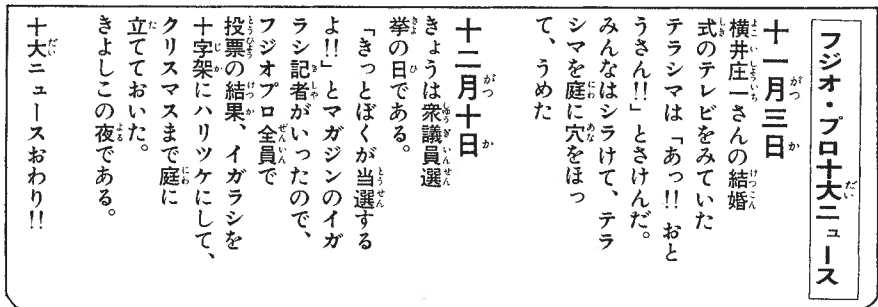 フジオ・プロ十大ニュース
十一月三日
横井庄一さんの結婚
式のテレビをみていた
テラシマは「あっ!! おと
うさん!!」とさけんだ。
みんなはシラけて、テラ
シマを庭に穴をほっ
て、うめた
十二月十日
きょうは衆議員選
挙の日である。
「きっとぼくが当選する
よ!!」とマガジンのイガ
ラシ記者がいったので、
フジオプロ全員で
投票の結果、イガラシを
十字架にハリツケにして、
クリスマスまで庭に
立てておいた。
きよしこの夜である。
十大ニュースおわり!!